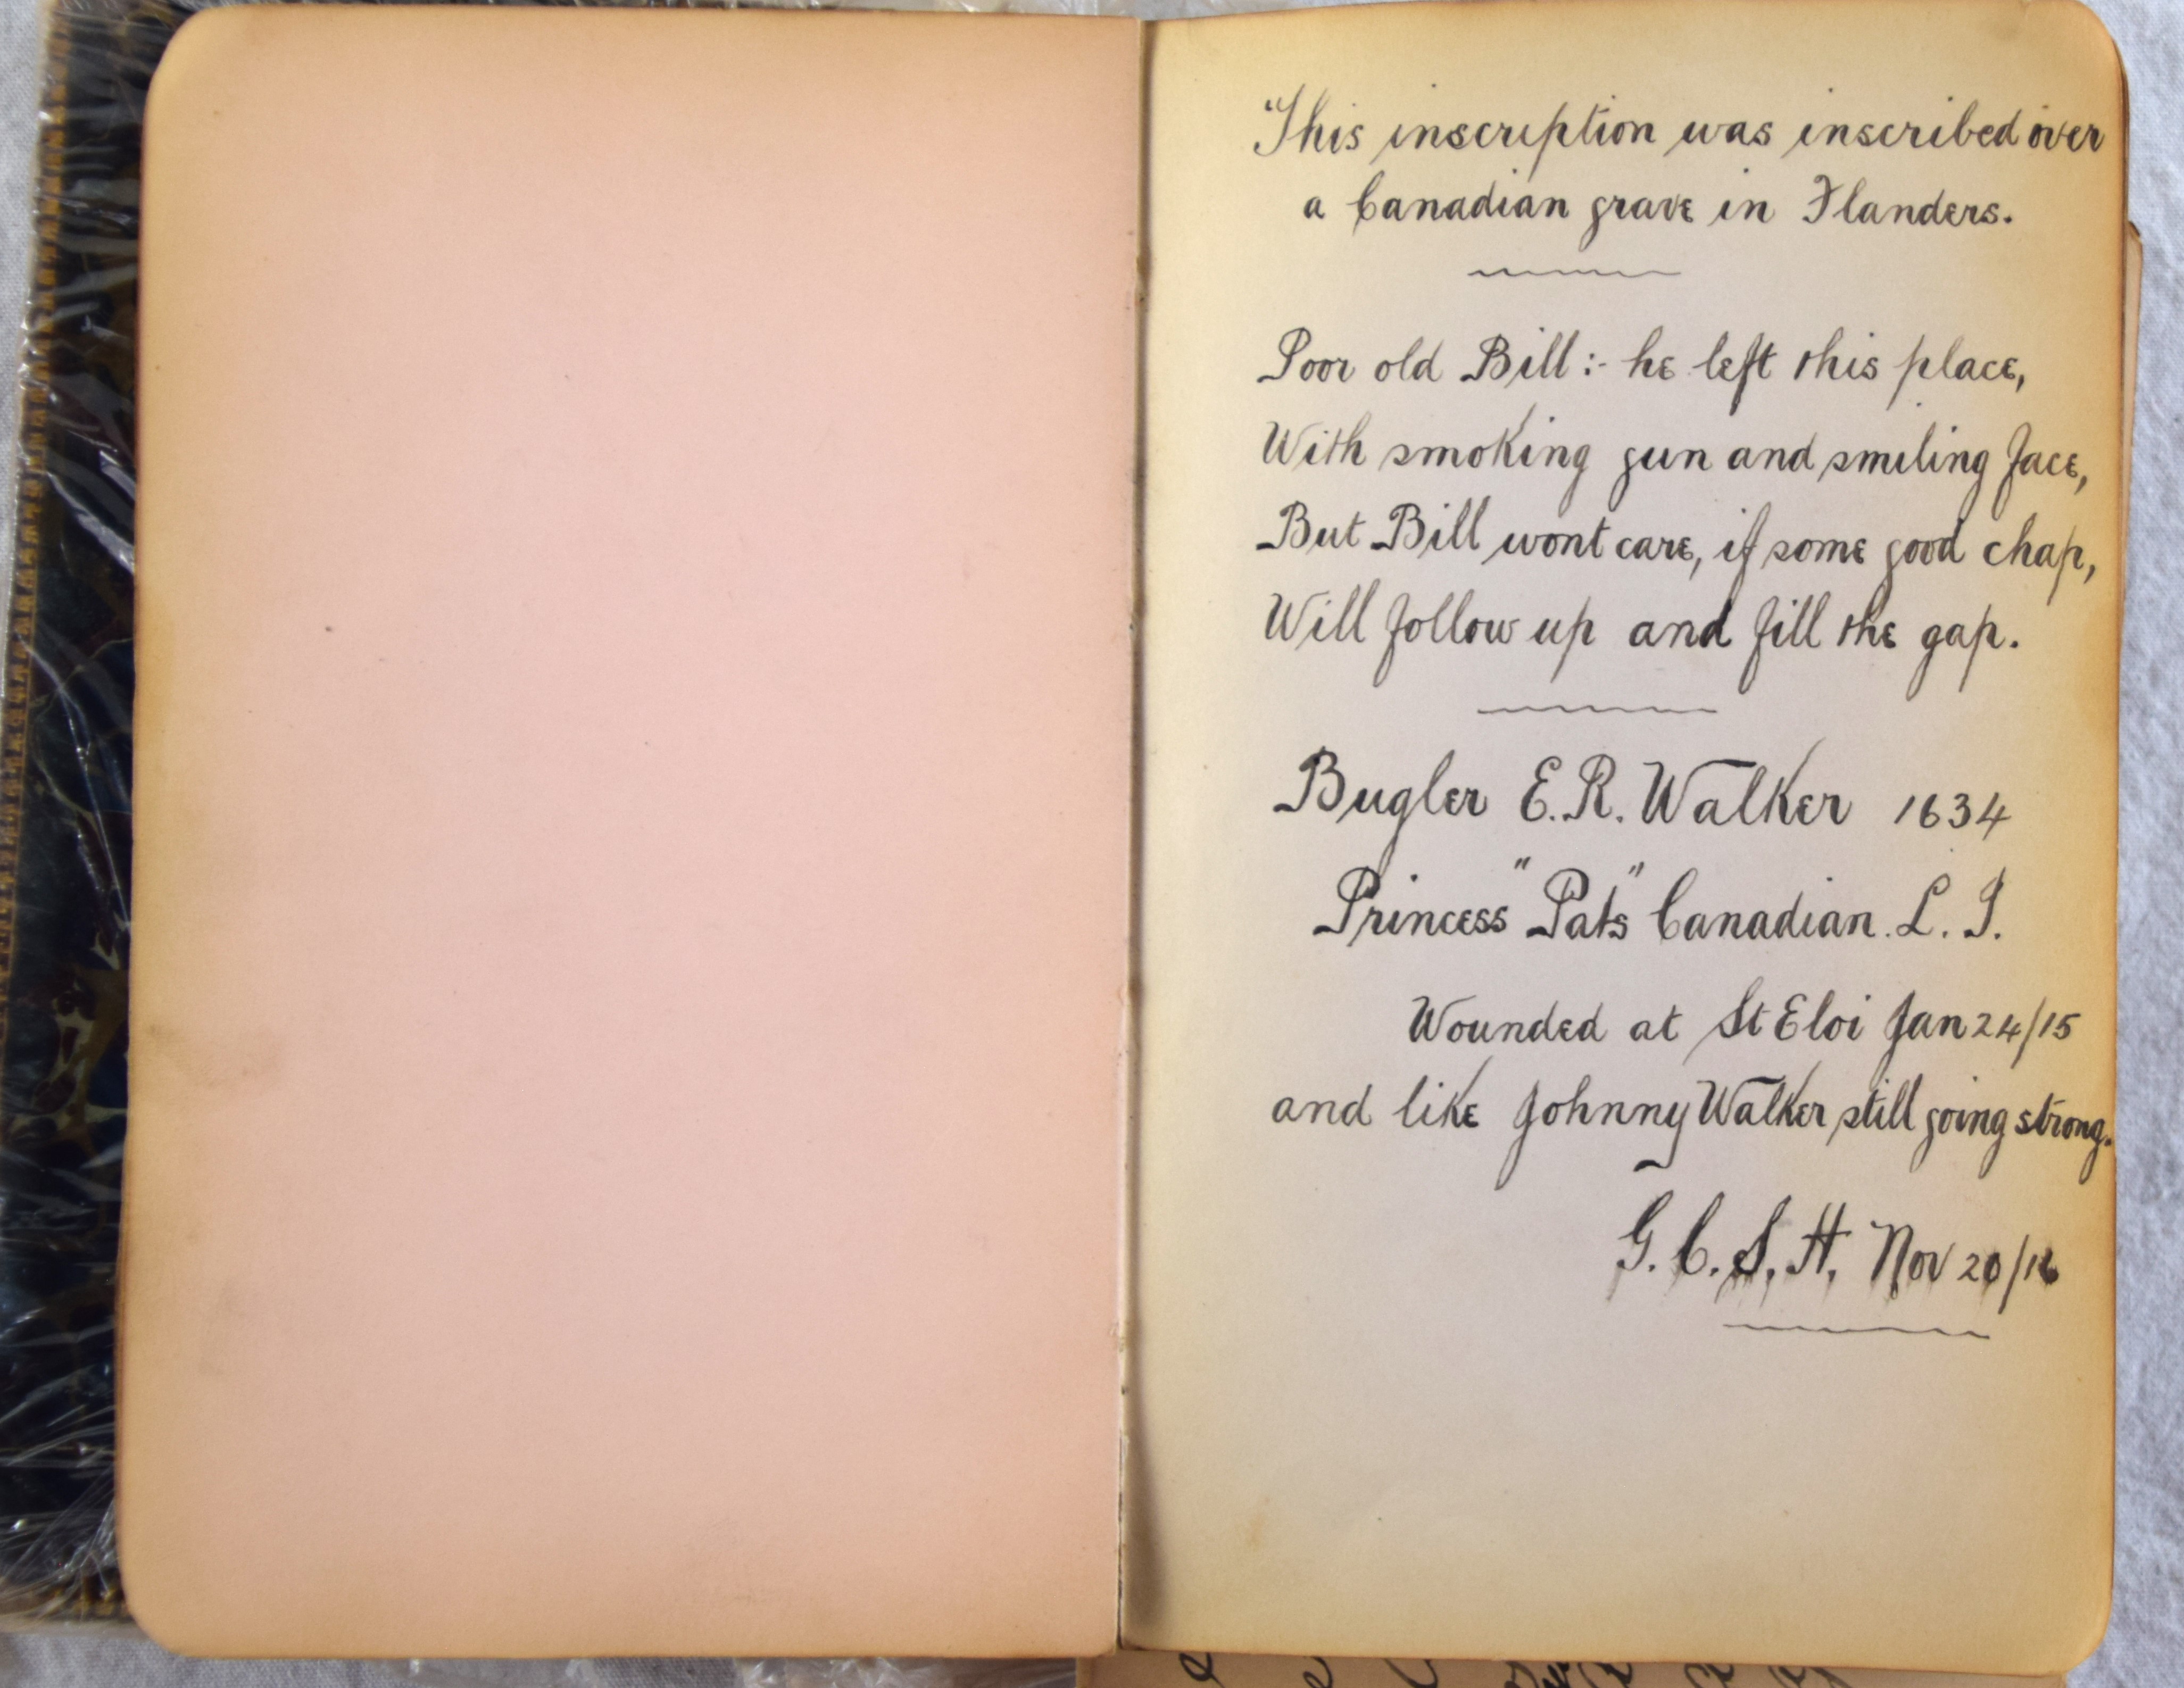 "This inscription was inscribed over
a Canadian grave in Flanders.
Poor old Bill :- he left this place,
With smoking gun and smiling face,
But Bill wont care, if some good chap,
Will follow up and fill the gap.
Bugler E.R. Walker 1634
Princess "Pats" Canadian. L. I.
Wounded at St Eloi Jan 24/15
and like Johnny Walker still going strong.
G. C. S. H. Nov 20/16